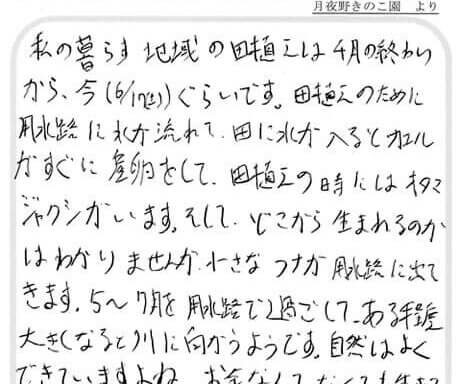 月夜野きのこ園 より
私の暮らす地域の田植えは4月の終わり
から、今(6/17(土))ぐらいです。田植えのために
用水路に水が流れて、田に水が入るとカエル
がすぐに産卵をして、田植えの時にはオタマ
ジャクシがいます。そして、どこから生まれるのか
はわかりませんが、小さなフナが用水路に出て
きます。5〜7月を用水路で過ごして、ある程度
大きくなると川に向かうようです。自然はよく
できていますよね。お金なんてなくても生き